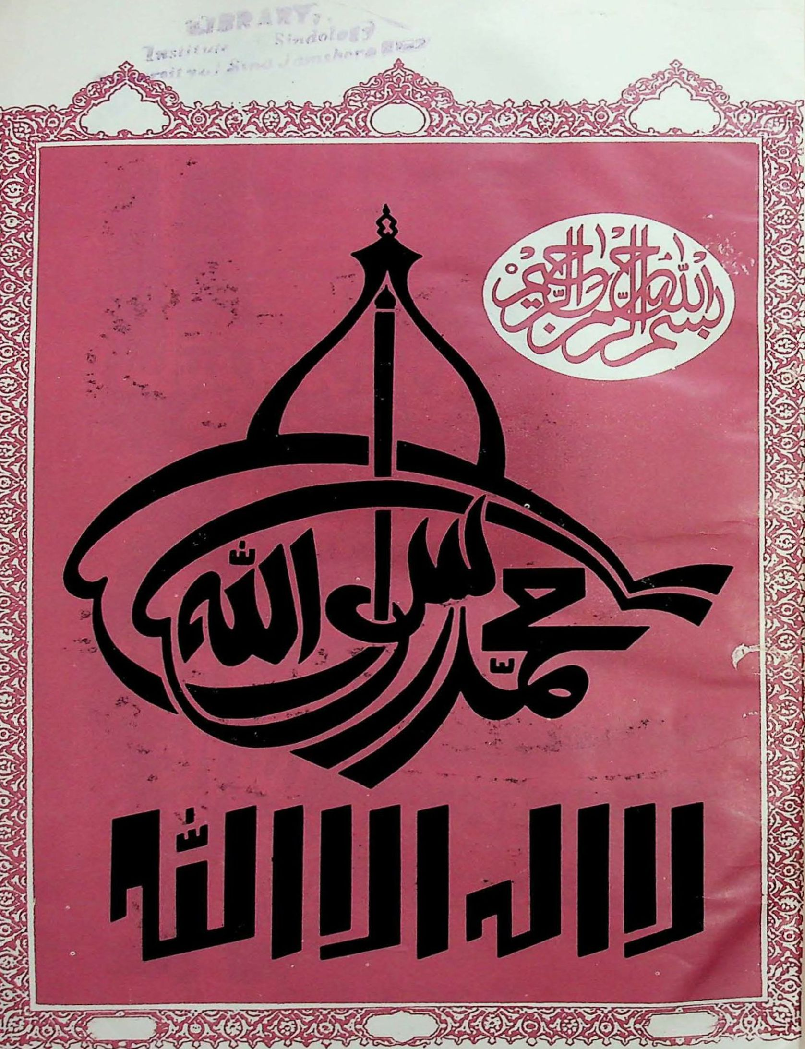 LIBRARY,
Institute Sindology
Sind Jamshoro
بسم الله الرحمن الرحيم
محمد رسول الله
لا اله الا الله